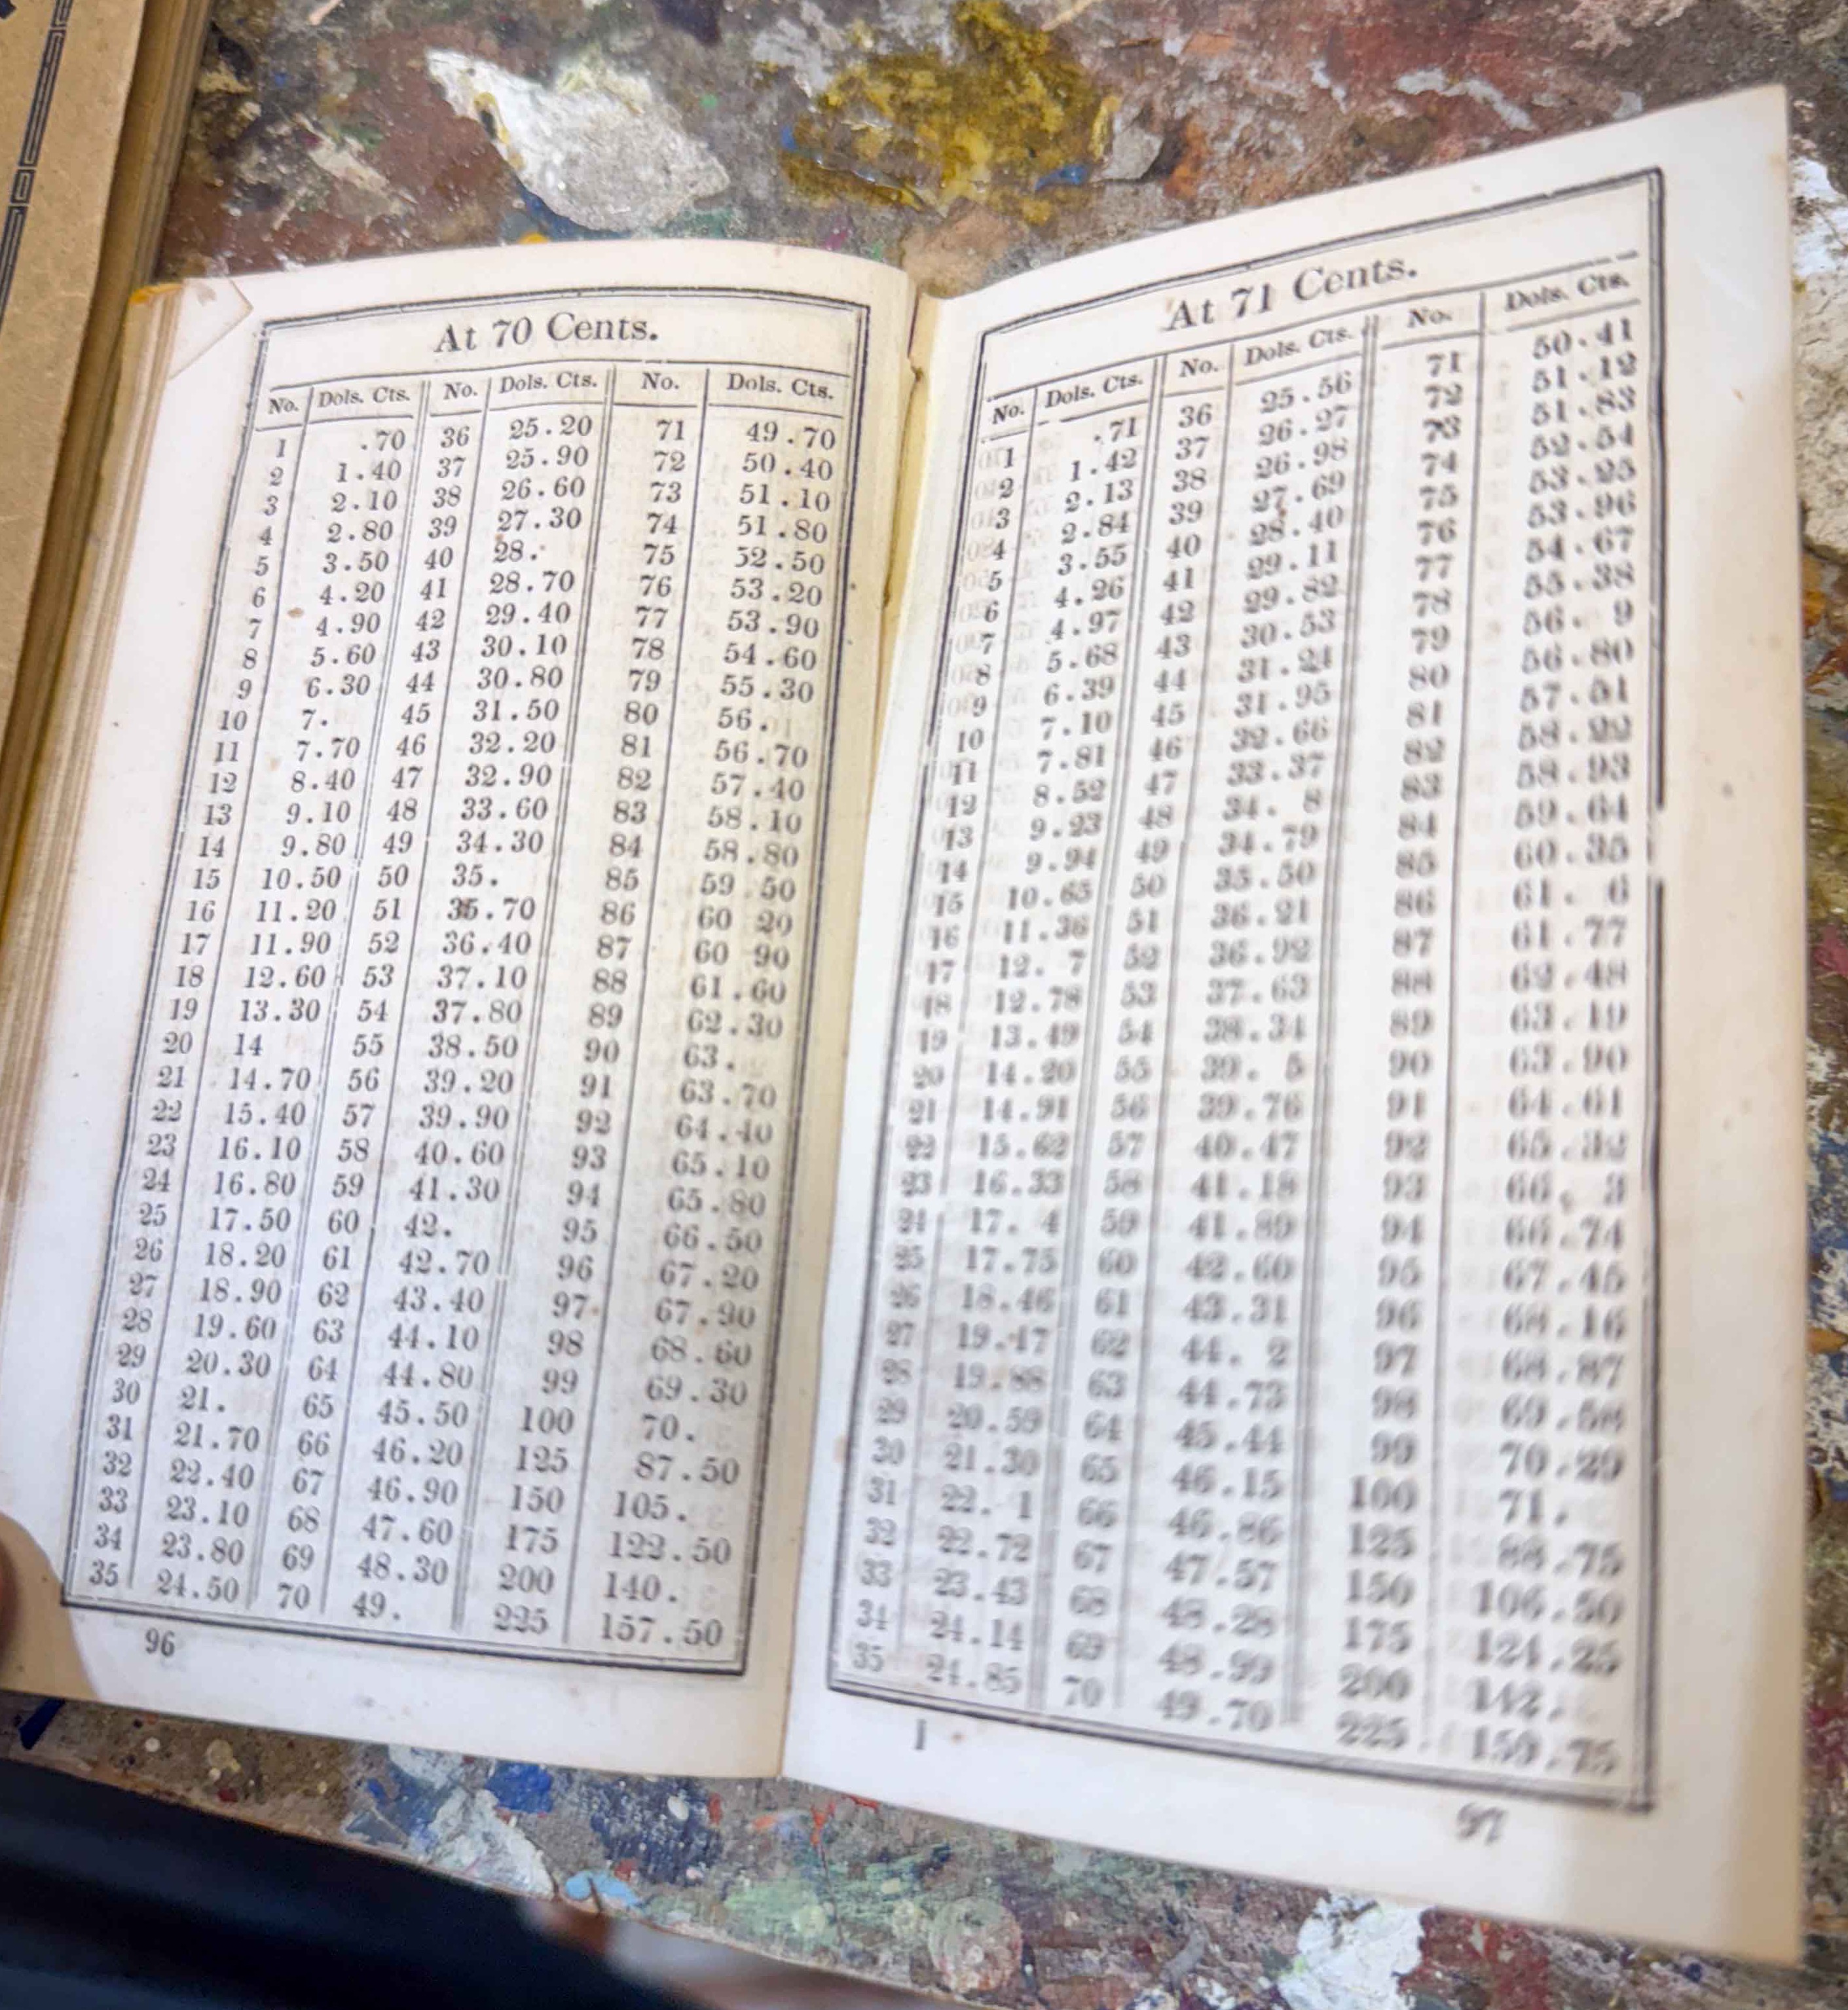 At 70 Cents.
No. Dols. Cts. No. Dols. Cts. No. Dols. Cts.
1 .70 36 25.20 71 49.70
2 1.40 37 25.90 72 50.40
3 2.10 38 26.60 73 51.10
4 2.80 39 27.30 74 51.80
5 3.50 40 28. 75 52.50
6 4.20 41 28.70 76 53.20
7 4.90 42 29.40 77 53.90
8 5.60 43 30.10 78 54.60
9 6.30 44 30.80 79 55.30
10 7. 45 31.50 80 56.
11 7.70 46 32.20 81 56.70
12 8.40 47 32.90 82 57.40
13 9.10 48 33.60 83 58.10
14 9.80 49 34.30 84 58.80
15 10.50 50 35. 85 59 50
16 11.20 51 35.70 86 60 20
17 11.90 52 36.40 87 60 90
18 12.60 53 37.10 88 61.60
19 13.30 54 37.80 89 62.30
20 14 55 38.50 90 63.
21 14.70 56 39.20 91 63.70
22 15.40 57 39.90 92 64.40
23 16.10 58 40.60 93 65.10
24 16.80 59 41.30 94 65.80
25 17.50 60 42. 95 66.50
26 18.20 61 42.70 96 67.20
27 18.90 62 43.40 97 67.90
28 19.60 63 44.10 98 68.60
29 20.30 64 44.80 99 69.30
30 21. 65 45.50 100 70.
31 21.70 66 46.20 125 87.50
32 22.40 67 46.90 150 105.
33 23.10 68 47.60 175 122.50
34 23.80 69 48.30 200 140.
35 24.50 70 49. 225 157.50
96
At 71 Cents.
No. Dols. Cts. No. Dols. Cts. No. Dols. Cts.
1 .71 36 25.56 71 50.41
2 1.42 37 26.27 72 51.12
3 2.13 38 26.98 73 51.83
4 2.84 39 27.69 74 52.54
5 3.55 40 28.40 75 53.25
6 4.26 41 29.11 76 53.96
7 4.97 42 29.82 77 54.67
8 5.68 43 30.53 78 55.38
9 6.39 44 31.24 79 56. 9
10 7.10 45 31.95 80 56.80
11 7.81 46 32.66 81 57.51
12 8.52 47 33.37 82 58.22
13 9.23 48 34. 8 83 58.93
14 9.94 49 34.79 84 59.64
15 10.65 50 35.50 85 60.35
16 11.36 51 36.21 86 61. 6
17 12. 7 52 36.92 87 61.77
18 12.78 53 37.63 88 62.48
19 13.49 54 38.34 89 63.19
20 14.20 55 39. 5 90 63.90
21 14.91 56 39.76 91 64.61
22 15.62 57 40.47 92 65.32
23 16.33 58 41.18 93 66. 3
24 17. 4 59 41.89 94 66.74
25 17.75 60 42.60 95 67.45
26 18.46 61 43.31 96 68.16
27 19.17 62 44. 2 97 68.87
28 19.88 63 44.73 98 69.58
29 20.59 64 45.44 99 70.29
30 21.30 65 46.15 100 71.
31 22. 1 66 46.86 125 88.75
32 22.72 67 47.57 150 106.50
33 23.43 68 48.28 175 124.25
34 24.14 69 48.99 200 142.
35 24.85 70 49.70 225 159.75
I
97